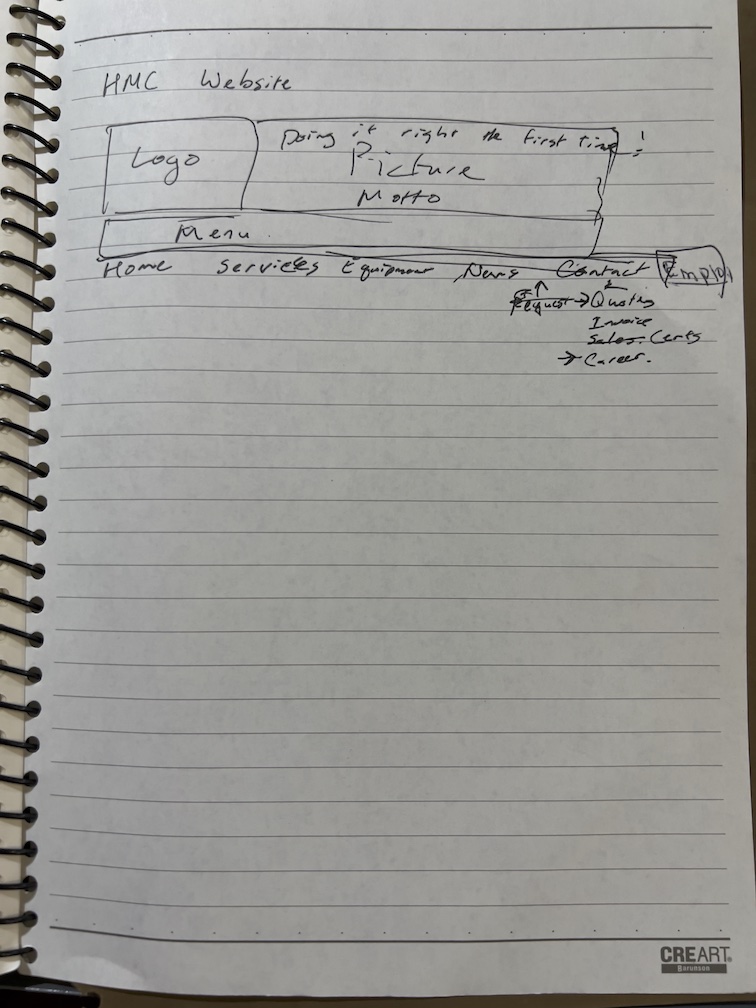 HMC Website
Doing it right the first time!
Logo
Picture
Motto
Menu
Home Services Equipment News Contact Employ
Request → Quotes
Invoice
Sales. Certs
→ Career.
CREART®